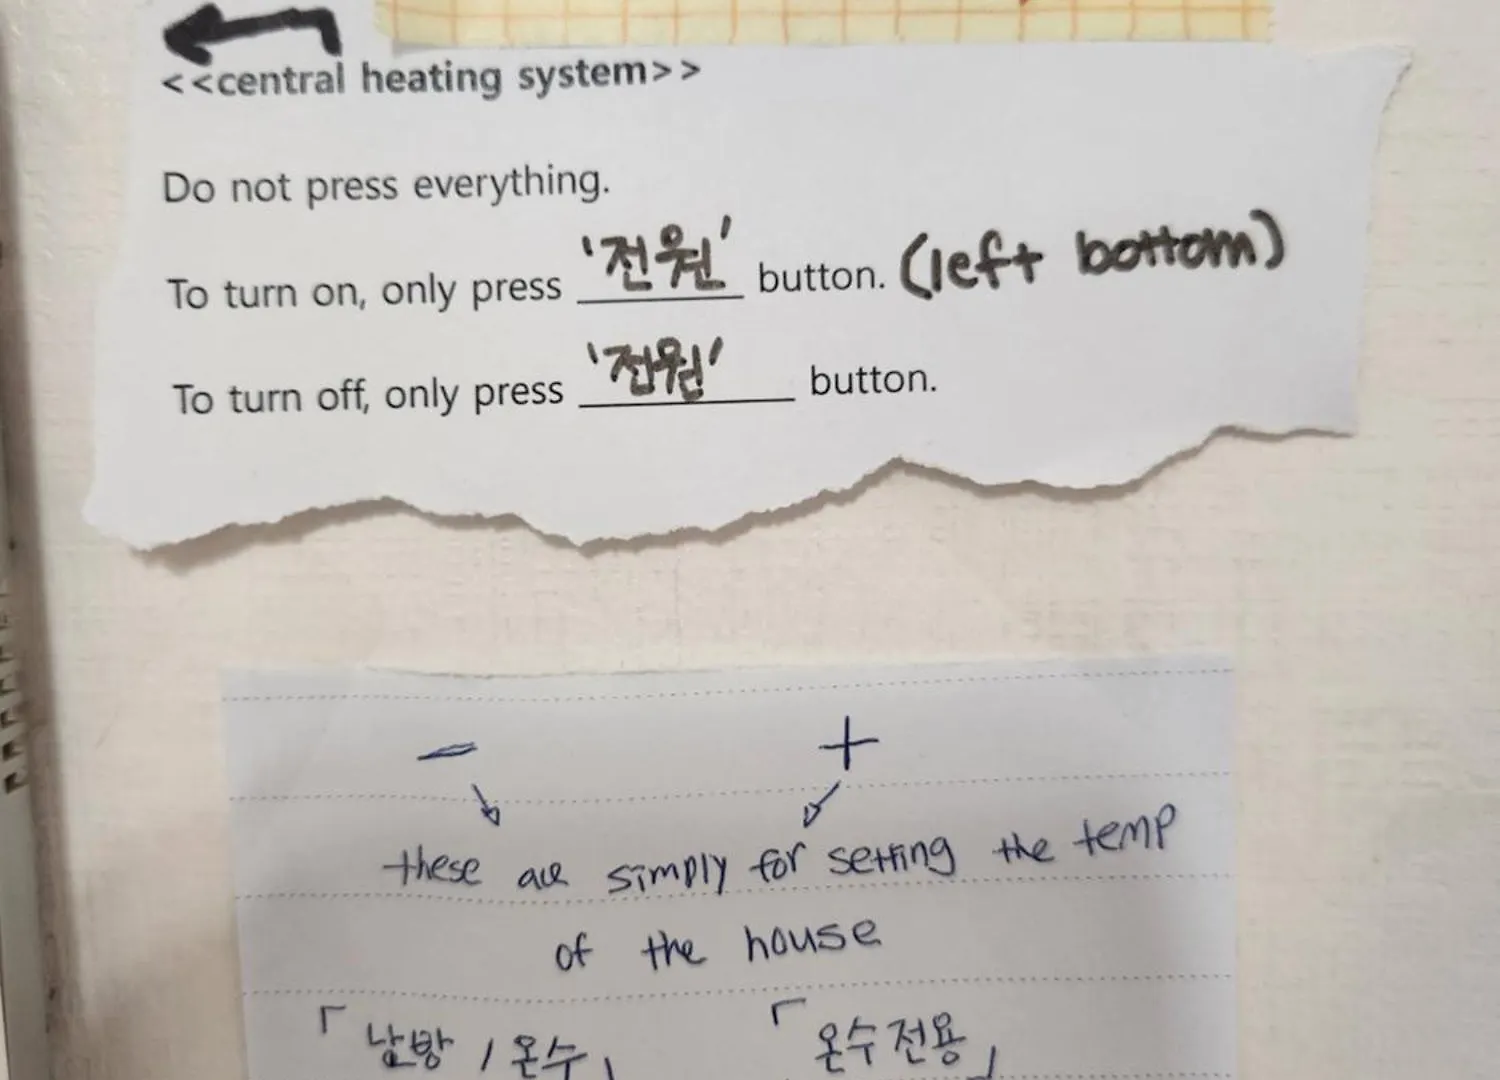 <<central heating system>>
Do not press everything.
To turn on, only press '전원' button. (left bottom)
To turn off, only press '전원' button.
- +
these are simply for setting the temp
of the house
「난방 / 온수」 「온수전용」